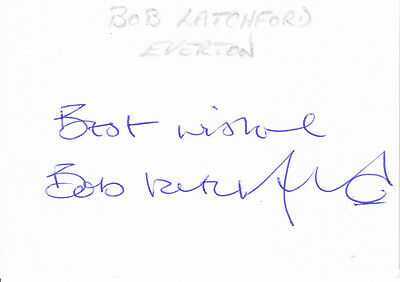 BOB LATCHFORD
EVERTON
Best wishes
Bob Latchford